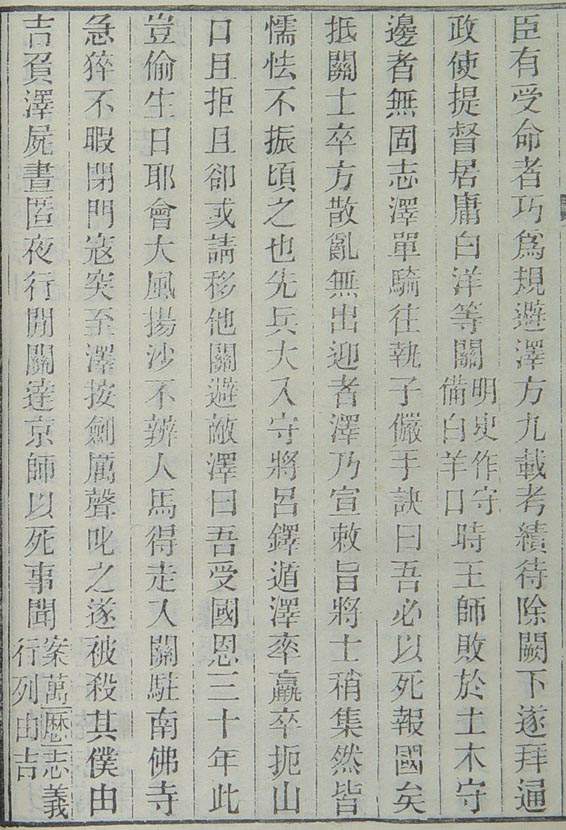 臣有受命者巧爲規避澤方九載考績待除闕下遂拜通
政使提督居庸白洋等關明史作守備白羊口時王師敗於土木守
邊者無固志澤單騎往執子儼手訣曰吾必以死報國矣
抵關士卒方散亂無出迎者澤乃宣敕旨將士稍集然皆
懦怯不振頃之也先兵大入守將呂鐸遁澤率羸卒扼山
口且拒且卻或請移他關避敵澤曰吾受國恩三十年此
豈偷生日耶會大風揚沙不辨人馬得走入關駐南佛寺
急猝不暇閉門寇突至澤按劍厲聲叱之遂被殺其僕由
吉負澤屍晝匿夜行閒關達京師以死事聞案萬歷志義行列由吉